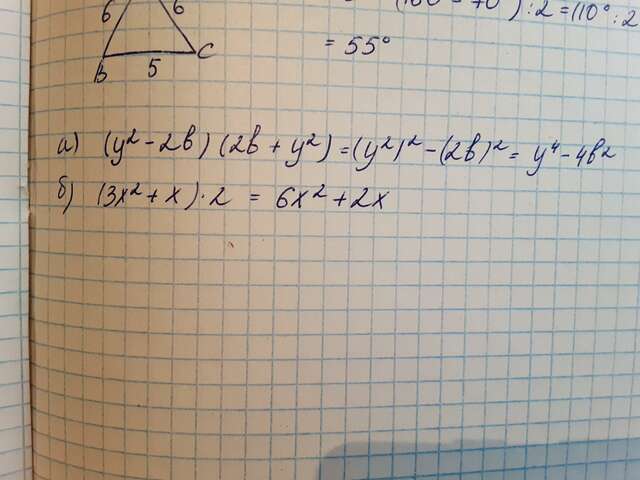 6 6 (180° - 70°) : 2 = 110° : 2
B 5 C = 55°
а) (y² - 2b) (2b + y²) = (y²)² - (2b)² = y⁴ - 4b²
б) (3x² + x) · 2 = 6x² + 2x